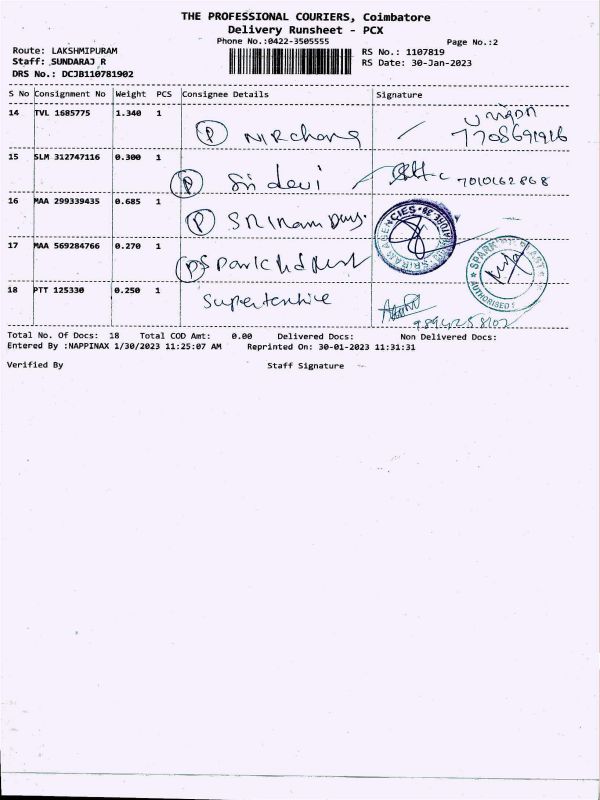 THE PROFESSIONAL COURIERS, Coimbatore
Delivery Runsheet - PCX
Phone No.:0422-3505555
Page No.:2
Route: LAKSHMIPURAM
RS No.: 1107819
Staff: SUNDARAJ R
RS Date: 30-Jan-2023
DRS No.: DCJB110781902
S No Consignment No Weight PCS Consignee Details Signature
14 TVL 1685775 1.340 1
P
7708691916
15 SLM 312747116 0.300 1
P Sri devi 7010162868
16 MAA 299339435 0.685 1
P Sriram
AGENCIES
17 MAA 569284766 0.270 1
SPARK
AUTHORISED
18 PTT 125330 0.250 1
9894258102
Total No. Of Docs: 18 Total COD Amt: 0.00 Delivered Docs: Non Delivered Docs:
Entered By :NAPPINAX 1/30/2023 11:25:07 AM Reprinted On: 30-01-2023 11:31:31
Verified By Staff Signature